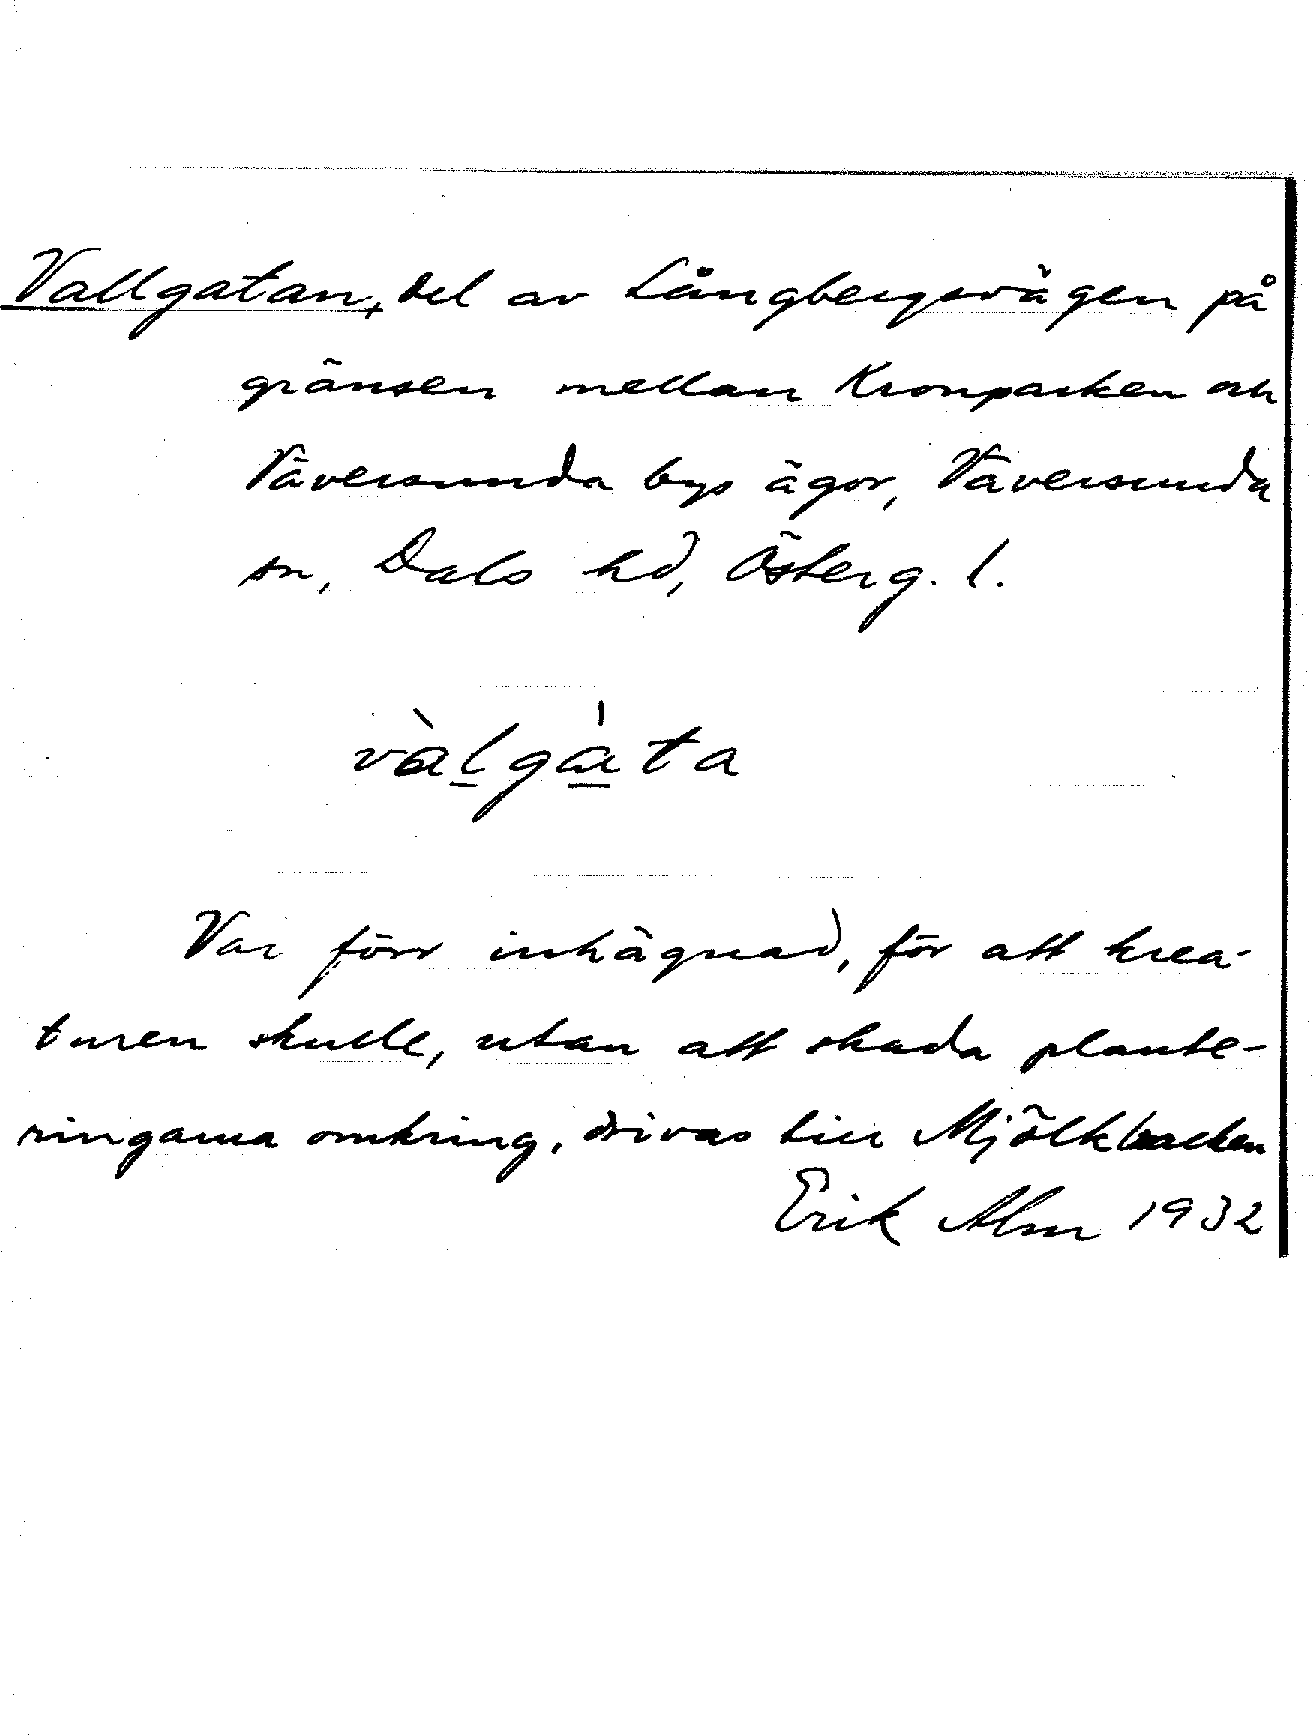 Vallgatan, del av Långbergsvägen på
gränsen mellan Kronparken och
Väversunda bys ägor, Väversunda
sn, Dals hd, Österg. l.
val̲ga̲ta
Var förr inhägnad, för att krea-
turen skulle, utan att skada plante-
ringarna omkring, drivas till Mjölkbacken
Erik Alm 1932